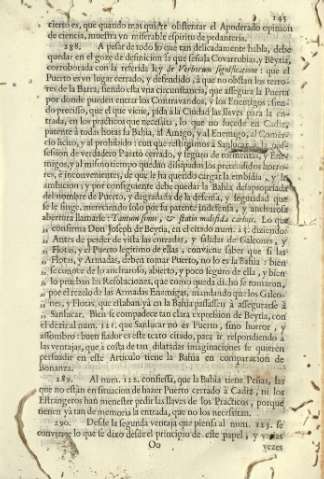 195
cierto es, que quando mas quiere obstentar el Apoderado opinion
de ciencia, muestra vn miserable espiritu de pedanteria.
288. A pesar de todo lo que tan delicadamente habla, debe
quedar en el goze de definicion la que señala Covarrubias, y Beytia,
corroborada con la referida ley de Verborum significatione: que el
Puerto es vn lugar cerrado, y defendido, á que no obstan los terro-
res de la Barra, siendo esta vna circunstancia, que assegura la Puerta
por donde pueden entrar los Contravandos, y los Enemigos: sien-
do preciso, que el que viene, pida à la Ciudad las llaves para la en-
trada, en los practicos que necessita, lo que no sucede en Cadiz,
patente à todas horas la Bahia, al Amigo, y al Enemigo, al Comer-
cio licito, y al prohibido: con que restituimos à Sanlucar à la pos-
session de verdadero Puerto cerrado, y seguro de tormentas, y Ene-
migos, y al mismo tiempo quedan dissipados los pretendidos horro-
res, è inconvenientes, de que le ha querido cargar la embidia, y la
ambicion; y por consiguiente debe quedar la Bahia desapropriada
del nombre de Puerto, y degradada de la defensa, y seguridad que
se le finge, mereciendo solo por su patente indefensa, y anchurosa
abertura llamarse: Tantum sinus, & statio malefida carinis. Lo que
confirma Don Joseph de Beytia, en el citado num. 23. diziendo:
„ Antes de perder de vista las entradas, y salidas de Galeones, y
„ Flotas, y el Puerto legitimo de ellas, conviene saber que si las
„ Flotas, y Armadas, deben tomar Puerto, no lo es la Bahia: bien
se conoce de lo anchuroso, abierto, y poco seguro de ella, y bien
„ lo prueban las Resoluciones, que como queda dicho se tomaron,
„ por el rezelo de las Armadas Enemigas, mandando que los Galeo-
„ nes, y Flotas, que estaban yá en la Bahia passassen à assegurarse à
„ Sanlucar. Bien se compadece tan clara expression de Beytia, con
el dezir al num. 121. que Sanlucar no es Puerto, sino horror, y
assombro: buen fiador es este texto citado, para ir respondiendo à
las ventajas, que à costa de tan dilatadas imaginaciones se quieren
persuadir en este Articulo tiene la Bahia en comparacion de
Bonanza.
289. Al num. 122. confiessa, que la Bahia tiene Peñas, las
que no están en situacion de hazer Puerto cerrado à Cadiz, ni los
Estrangeros han menester pedir las llaves de los Practicos, porque
tienen yá tan de memoria la entrada, que no los necessitan.
290. Desde la segunda ventaja que piensa al num. 123. se
convence lo que se dixo desde el principio de este papel, y
Oo vezes